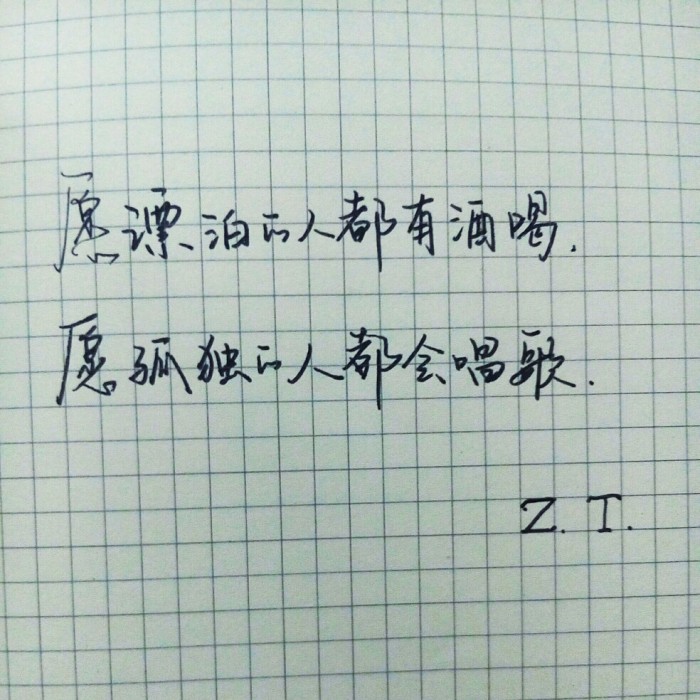 愿漂泊的人都有酒喝.
愿孤独的人都会唱歌.
Z. T.